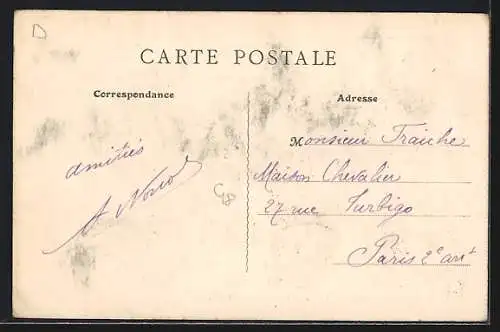 D
CARTE POSTALE
Correspondance
Adresse
amitiés
Monsieur Fraiche
Maison Chevalier
27 rue Turbigo
Paris 2e arrt